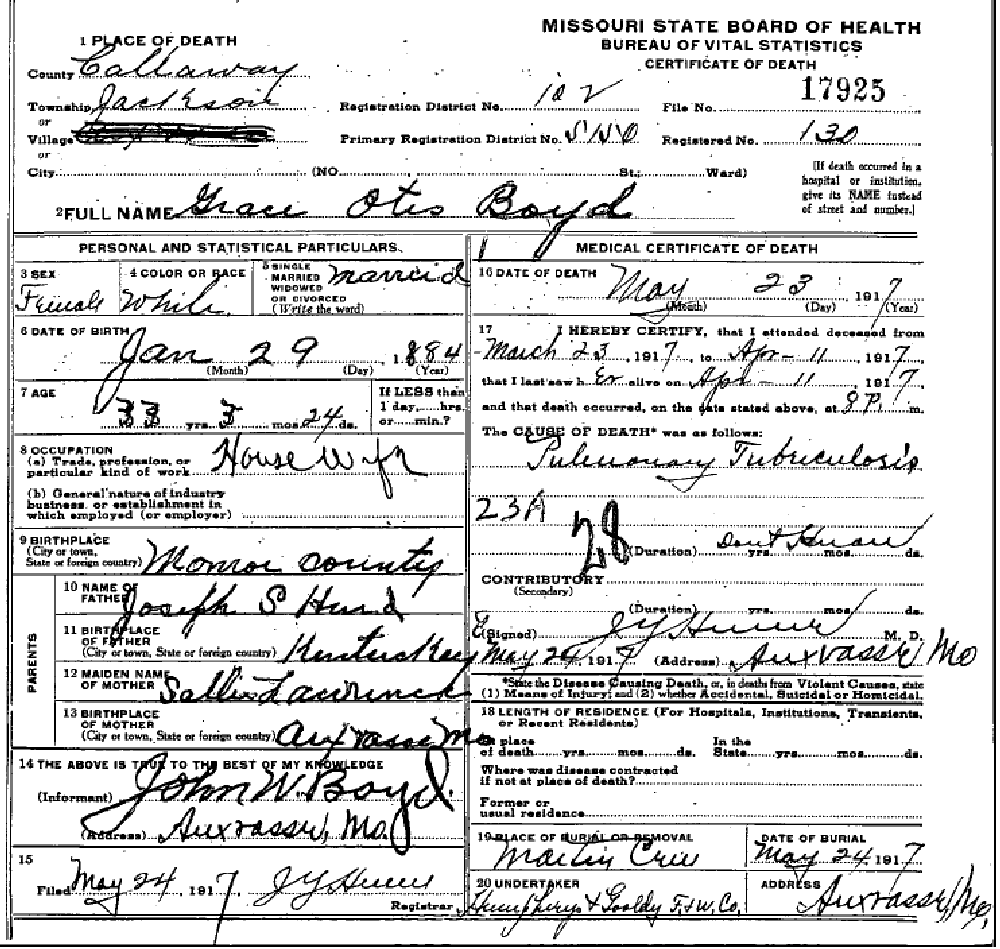 MISSOURI STATE BOARD OF HEALTH
BUREAU OF VITAL STATISTICS
CERTIFICATE OF DEATH
1 PLACE OF DEATH
County Callaway
Township Jackson
or
Village
or
City (NO. St.; Ward)
Registration District No. 102
File No. 17925
Primary Registration District No.
Registered No. 130
[If death occurred in a
hospital or institution,
give its NAME instead
of street and number.]
2 FULL NAME Grace Otis Boyd
PERSONAL AND STATISTICAL PARTICULARS
3 SEX
Female
4 COLOR OR RACE
White
5 SINGLE
MARRIED
WIDOWED
OR DIVORCED
(Write the word)
Married
6 DATE OF BIRTH
Jan 29 1884
(Month) (Day) (Year)
7 AGE
33 yrs. 3 mos. 24 ds.
If LESS than
1 day, hrs.
or min.?
8 OCCUPATION
(a) Trade, profession, or
particular kind of work House Wife
(b) General nature of industry
business, or establishment in
which employed (or employer)
9 BIRTHPLACE
(City or town,
State or foreign country) Monroe County
PARENTS
10 NAME OF
FATHER Joseph S
11 BIRTHPLACE
OF FATHER
(City or town, State or foreign country) Kentuckey
12 MAIDEN NAME
OF MOTHER Sallie Lawrence
13 BIRTHPLACE
OF MOTHER
(City or town, State or foreign country) Auxvasse Mo
14 THE ABOVE IS TRUE TO THE BEST OF MY KNOWLEDGE
(Informant) John W. Boyd
(Address) Auxvasse, Mo
15
Filed May 24, 1917,
Registrar
MEDICAL CERTIFICATE OF DEATH
16 DATE OF DEATH
May 23 1917
(Month) (Day) (Year)
17 I HEREBY CERTIFY, that I attended deceased from
March 23, 1917, to Apr - 11 1917,
that I last saw her alive on Apr - 11, 1917,
and that death occurred, on the date stated above, at 8 P. m.
The CAUSE OF DEATH* was as follows:
Pulmonary Tuberculosis
23A
28
(Duration) Dont Know yrs. mos. ds.
CONTRIBUTORY
(Secondary)
(Duration) yrs. mos. ds.
(Signed) M. D.
May 1917 (Address) Auxvasse, Mo
*State the Disease Causing Death, or, in deaths from Violent Causes, state
(1) Means of Injury; and (2) whether Accidental, Suicidal or Homicidal.
18 LENGTH OF RESIDENCE (For Hospitals, Institutions, Transients,
or Recent Residents)
In place
of death yrs. mos. ds.
In the
State yrs. mos. ds.
Where was disease contracted
if not at place of death?
Former or
usual residence
19 PLACE OF BURIAL OR REMOVAL
DATE OF BURIAL
May 24, 1917
20 UNDERTAKER
ADDRESS
Auxvasse, Mo.